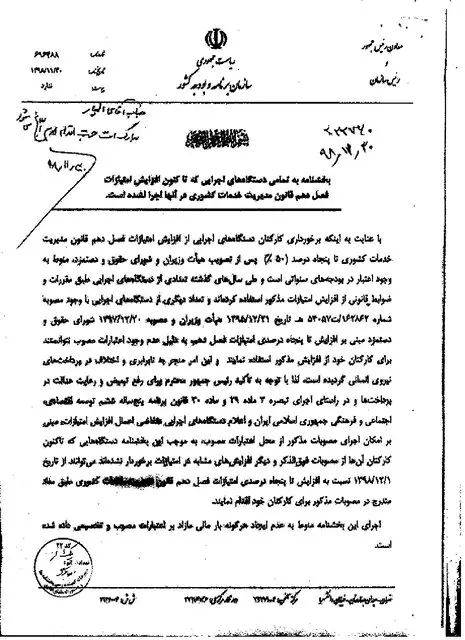 ریاست جمهوری
سازمان برنامه و بودجه کشور
معاون رئیس جمهور
و
رئیس سازمان
۶۹۶۲۸۸
۱۳۹۸/۱۱/۳۰
ندارد
۹۸,۱۲,۲۰
بخشنامه به تمامی دستگاه‌های اجرایی که تا کنون افزایش امتیازات
فصل دهم قانون مدیریت خدمات کشوری در آنها اجرا نشده است.
با عنایت به اینکه برخورداری کارکنان دستگاه‌های اجرایی از افزایش امتیازات فصل دهم قانون مدیریت
خدمات کشوری تا پنجاه درصد (۵۰٪) پس از تصویب هیأت وزیران و شورای حقوق و دستمزد، منوط به
وجود اعتبار در بودجه‌های سنواتی است و طی سال‌های گذشته تعدادی از دستگاه‌های اجرایی طبق مقررات و
ضوابط قانونی از افزایش امتیازات مذکور استفاده کرده‌اند و تعداد دیگری از دستگاه‌های اجرایی با وجود مصوبه
شماره ۱۶۲۸۶۲/ت۵۴۰۵۷ هـ تاریخ ۱۳۹۵/۱۲/۲۱ هیأت وزیران و مصوبه ۱۳۹۷/۱۲/۲۰ شورای حقوق و
دستمزد مبنی بر افزایش تا پنجاه درصدی امتیازات فصل دهم به دلیل عدم وجود اعتبارات مصوب نتوانستند
برای کارکنان خود از افزایش مذکور استفاده نمایند و این امر منجر به نابرابری و اختلاف در پرداخت‌های
نیروی انسانی گردیده است، لذا با توجه به تأکید رئیس جمهور محترم برای رفع تبعیض و رعایت عدالت در
پرداخت‌ها و در راستای اجرای تبصره ۳ ماده ۲۹ و ماده ۳۰ قانون برنامه پنج‌ساله ششم توسعه اقتصادی،
اجتماعی و فرهنگی جمهوری اسلامی ایران و اعلام دستگاه‌های اجرایی متقاضی اعمال افزایش امتیازات، مبنی
بر امکان اجرای مصوبات مذکور از محل اعتبارات مصوب، به موجب این بخشنامه دستگاه‌هایی که تاکنون
کارکنان آن‌ها از مصوبات فوق‌الذکر و دیگر افزایش‌های مشابه در امتیازات برخوردار نشده‌اند می‌توانند از تاریخ
۱۳۹۸/۱۲/۱ نسبت به افزایش تا پنجاه درصدی امتیازات فصل دهم قانون کشوری طبق مفاد
مندرج در مصوبات مذکور برای کارکنان خود اقدام نمایند.
اجرای این بخشنامه منوط به عدم ایجاد هرگونه بار مالی مازاد بر اعتبارات مصوب و تخصیصی داده شده
است.